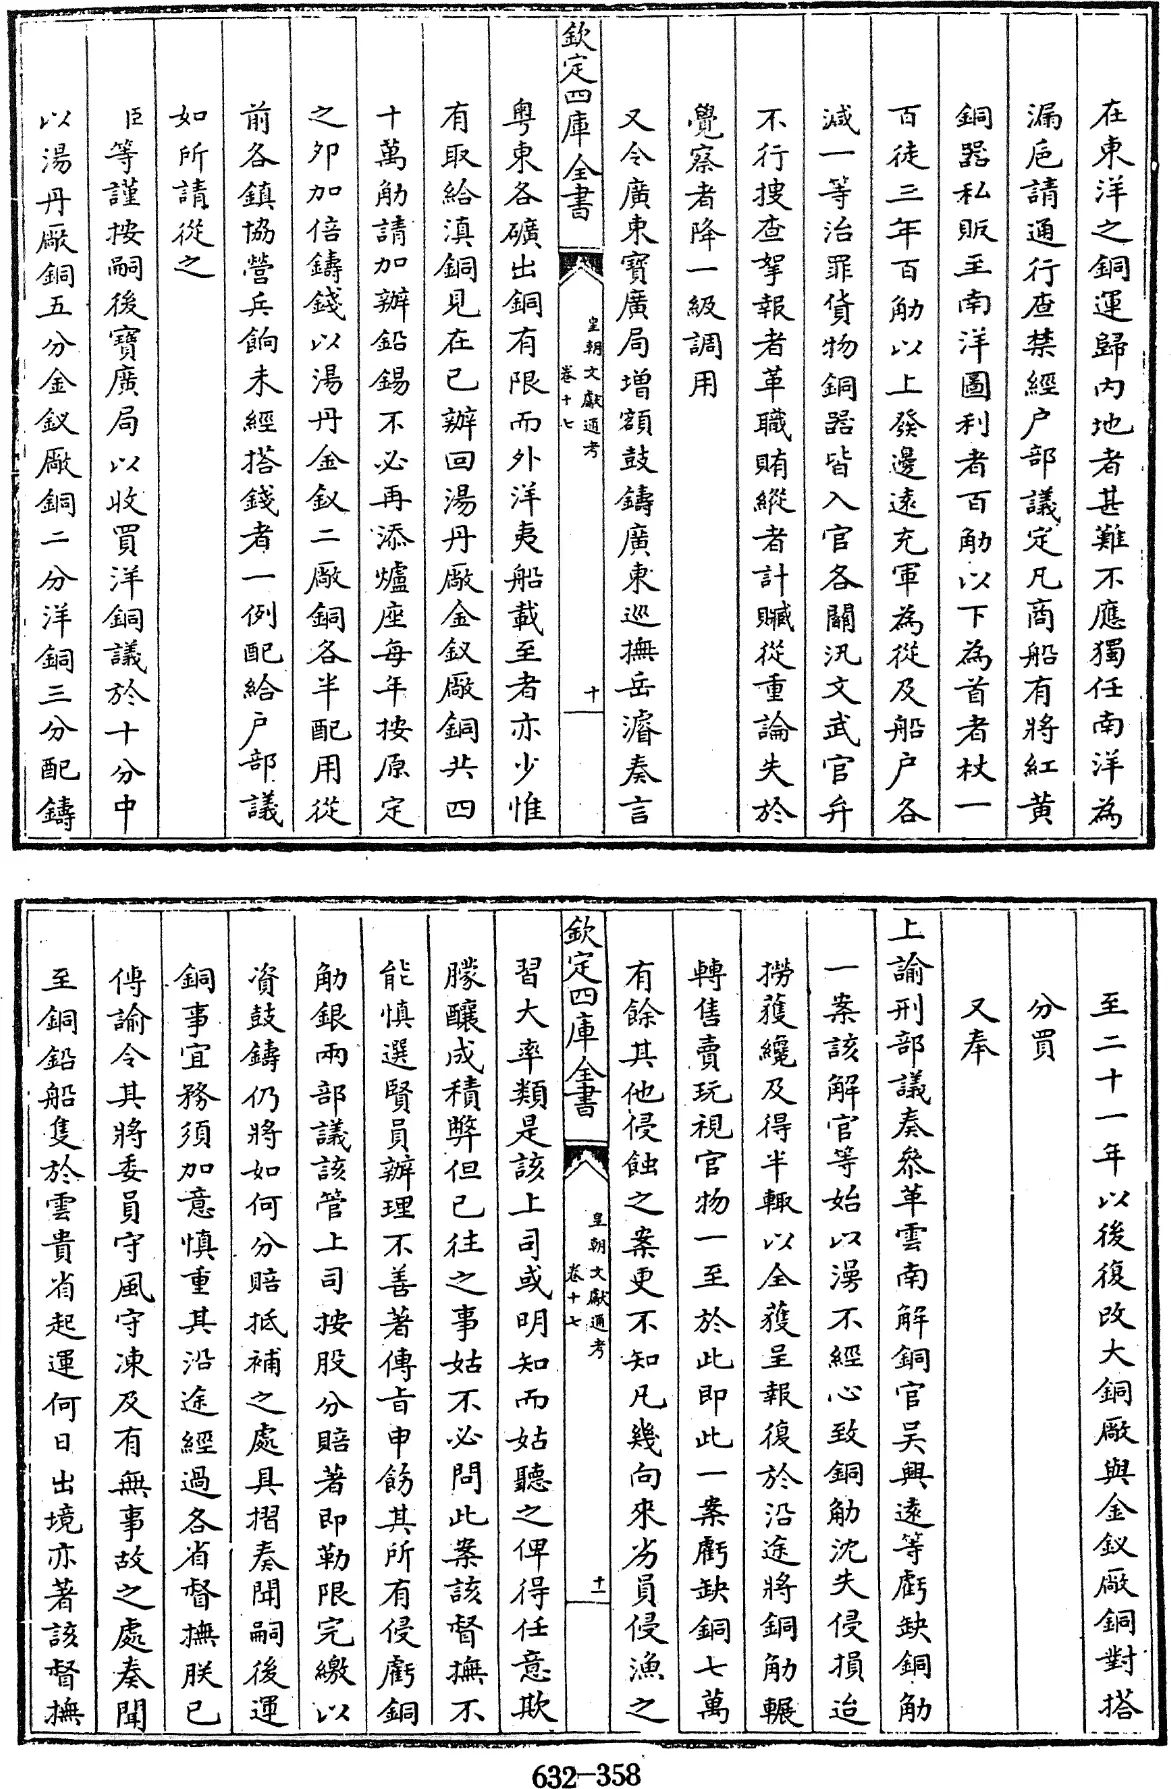 在東洋之銅運歸内地者甚難不應獨任南洋為
漏巵請通行查禁經户部議定凡商船有將紅黄
銅器私販至南洋圖利者百觔以下為首者杖一
百徒三年百觔以上發邊逺充軍為從及船户各
減一等治罪貨物銅器皆入官各關汛文武官弁
不行搜查拏報者革職賄縱者計贓從重論失於
覺察者降一級調用
又令廣東寶廣局增額鼓鑄廣東巡撫岳濬奏言
欽定四庫全書
皇朝文獻通考
卷十七
十
粤東各礦出銅有限而外洋夷船載至者亦少惟
有取給滇銅見在已辦回湯丹廠金釵廠銅共四
十萬觔請加辦鉛錫不必再添爐座每年按原定
之夘加倍鑄錢以湯丹金釵二廠銅各半配用從
前各鎮協營兵餉未經搭錢者一例配給户部議
如所請從之
臣等謹按嗣後寶廣局以收買洋銅議於十分中
以湯丹廠銅五分金釵廠銅二分洋銅三分配鑄
至二十一年以後復改大銅廠與金釵廠銅對搭
分買
又奉
上諭刑部議奏叅革雲南解銅官吴興逺等虧缺銅觔
一案該解官等始以漫不經心致銅觔沈失侵損迨
撈獲纔及得半輒以全獲呈報復於沿途將銅觔輾
轉售賣玩視官物一至於此即此一案虧缺銅七萬
有餘其他侵蝕之案更不知凡幾向來劣員侵漁之
欽定四庫全書
皇朝文獻通考
卷十七
十一
習大率類是該上司或明知而姑聽之俾得任意欺
朦釀成積弊但已往之事姑不必問此案該督撫不
能慎選賢員辦理不善著傳㫖申飭其所有侵虧銅
觔銀兩部議該管上司按股分賠著即勒限完繳以
資鼓鑄仍將如何分賠抵補之處具摺奏聞嗣後運
銅事宜務須加意慎重其沿途經過各省督撫朕已
傳諭令其將委員守風守凍及有無事故之處奏聞
至銅鉛船隻於雲貴省起運何日出境亦著該督撫
632-358